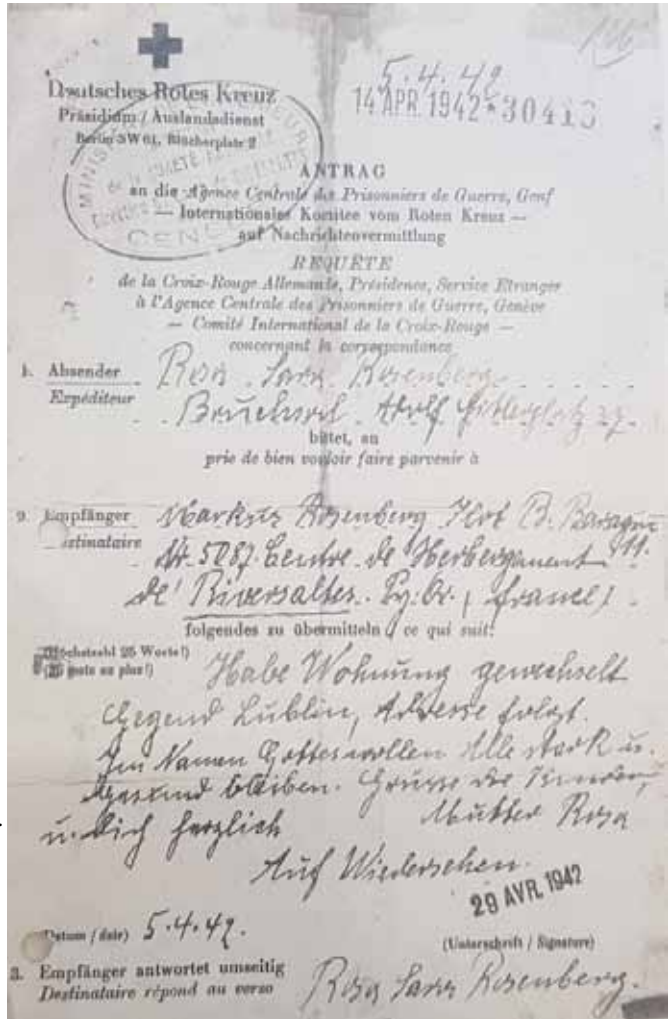 146
5.4.42
Deutsches Rotes Kreuz
14 APR. 1942 * 30413
Präsidium / Auslandsdienst
Berlin SW 61, Blücherplatz 2
ANTRAG
an die Agence Centrale des Prisonniers de Guerre, Genf
— Internationales Komitee vom Roten Kreuz —
auf Nachrichtenvermittlung
REQUÊTE
de la Croix-Rouge Allemande, Présidence, Service Etranger
à l'Agence Centrale des Prisonniers de Guerre, Genève
— Comité International de la Croix-Rouge —
concernant la correspondance
1. Absender Rosa Sara Rosenberg
Expéditeur Bruchsal Adolf Hitlerplatz 27.
bittet, an
prie de bien vouloir faire parvenir à
2. Empfänger Markus Rosenberg Ilot B. Baraque 11.
Destinataire Nr. 5087 Centre de Herbergement
de Riversaltes. Py. Or., (France)
folgendes zu übermitteln / ce qui suit:
(Höchstzahl 25 Worte!)
(25 mots au plus!)
Habe Wohnung gewechselt
Gegend Lublin, Adresse folgt.
Im Namen Gottes wollen Alle stark u.
Gesund bleiben. Grüsse die Kinder,
u. dich herzlich Mutter Rosa
Auf Wiedersehen.
29 AVR. 1942
(Datum / date) 5.4.42.
(Unterschrift / Signature)
3. Empfänger antwortet umseitig
Destinataire répond au verso
Rosa Sara Rosenberg.